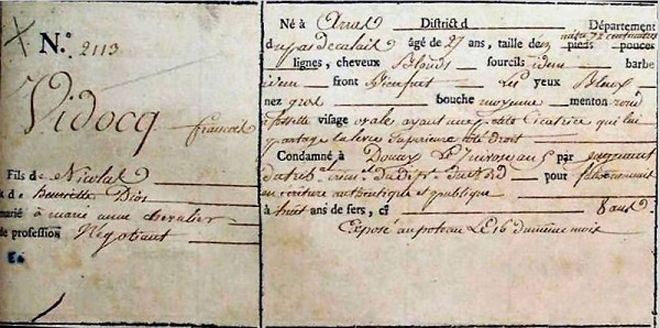 N.º 2113
Vidocq
francois
Fils de Nicolas
& de henriette Dion
marié à marie anne chevalier
de profession Négotiant
Né à Arras District d Département
du pas de calais âgé de 27 ans, taille de pieds pouces
lignes, cheveux Blonds sourcils idem barbe
idem front Bienfait Les yeux Bleux
nez gros bouche moyenne menton rond
fossette visage ovale ayant une petite Cicatrice qui lui
partage la levre Superieure côté droit
Condamné à Douay Le 7 nivose an 5 par jugement
du trib. du dép. du Nord pour
en écriture authentique et publique
à huit ans de fers, ci 8 ans
Exposé au poteau LE 16 du même mois